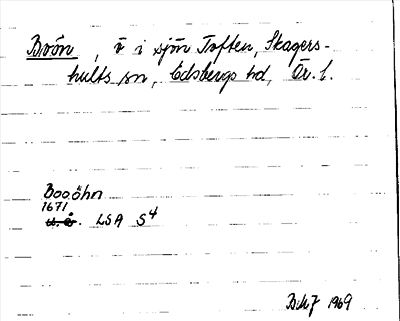 Boön, ö i sjön Toften, Skagers-
hults sn, Edsbergs hd, Ör. l.
Booöhn
1671
u.å. LSA S4
1969